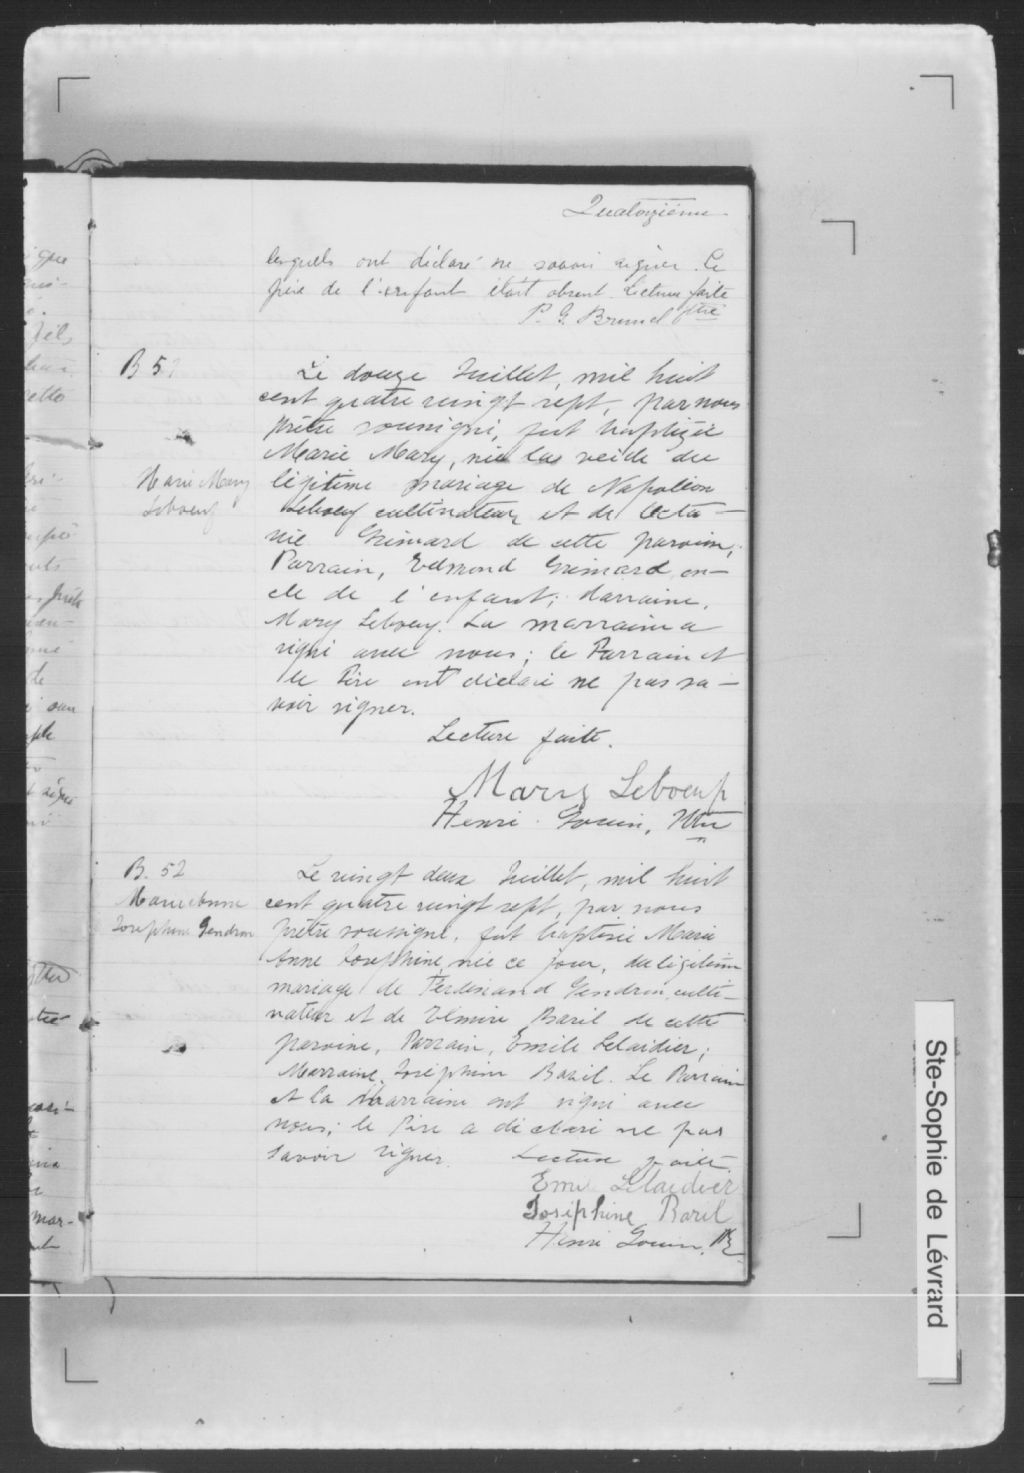 Quatorzième
lesquels ont déclaré ne savoir signer. Le
père de l'enfant était absent. Lecture faite
P. G. Brunel ptre
B 51
Le douze Juillet, mil huit
cent quatre vingt sept, par nous
prêtre soussigné, fut baptizée
Marie Mary, née la veille du
Marie Mary
légitime mariage de Napoléon
Leboeuf
Leboeuf cultivateur et de Octa-
vie Grimard de cette paroisse;
Parrain, Edmond Grimard, on-
cle de l'enfant; Marraine,
Mary Leboeuf. La marraine a
signé avec nous; le Parrain et
le Père ont déclaré ne pas sa-
voir signer.
Lecture faite.
Mary Leboeuf
Henri Gouin, Ptre
B. 52
Le vingt deux Juillet, mil huit
Marie Anne
cent quatre vingt sept, par nous
Josephine Gendron
prêtre soussigné, fut baptisée Marie
Anne Josephine, née ce jour, du légitime
mariage de Ferdinand Gendron, culti-
vateur et de Elmire Baril de cette
paroisse, Parrain, Emile Lelaidier;
Marraine, Joséphine Baril. Le Parrain
et la Marraine ont signé avec
nous; le Père a déclaré ne pas
savoir signer. Lecture faite.
Lelaidier
Joséphine Baril
Henri Gouin, Ptre
Ste-Sophie de Lévrard